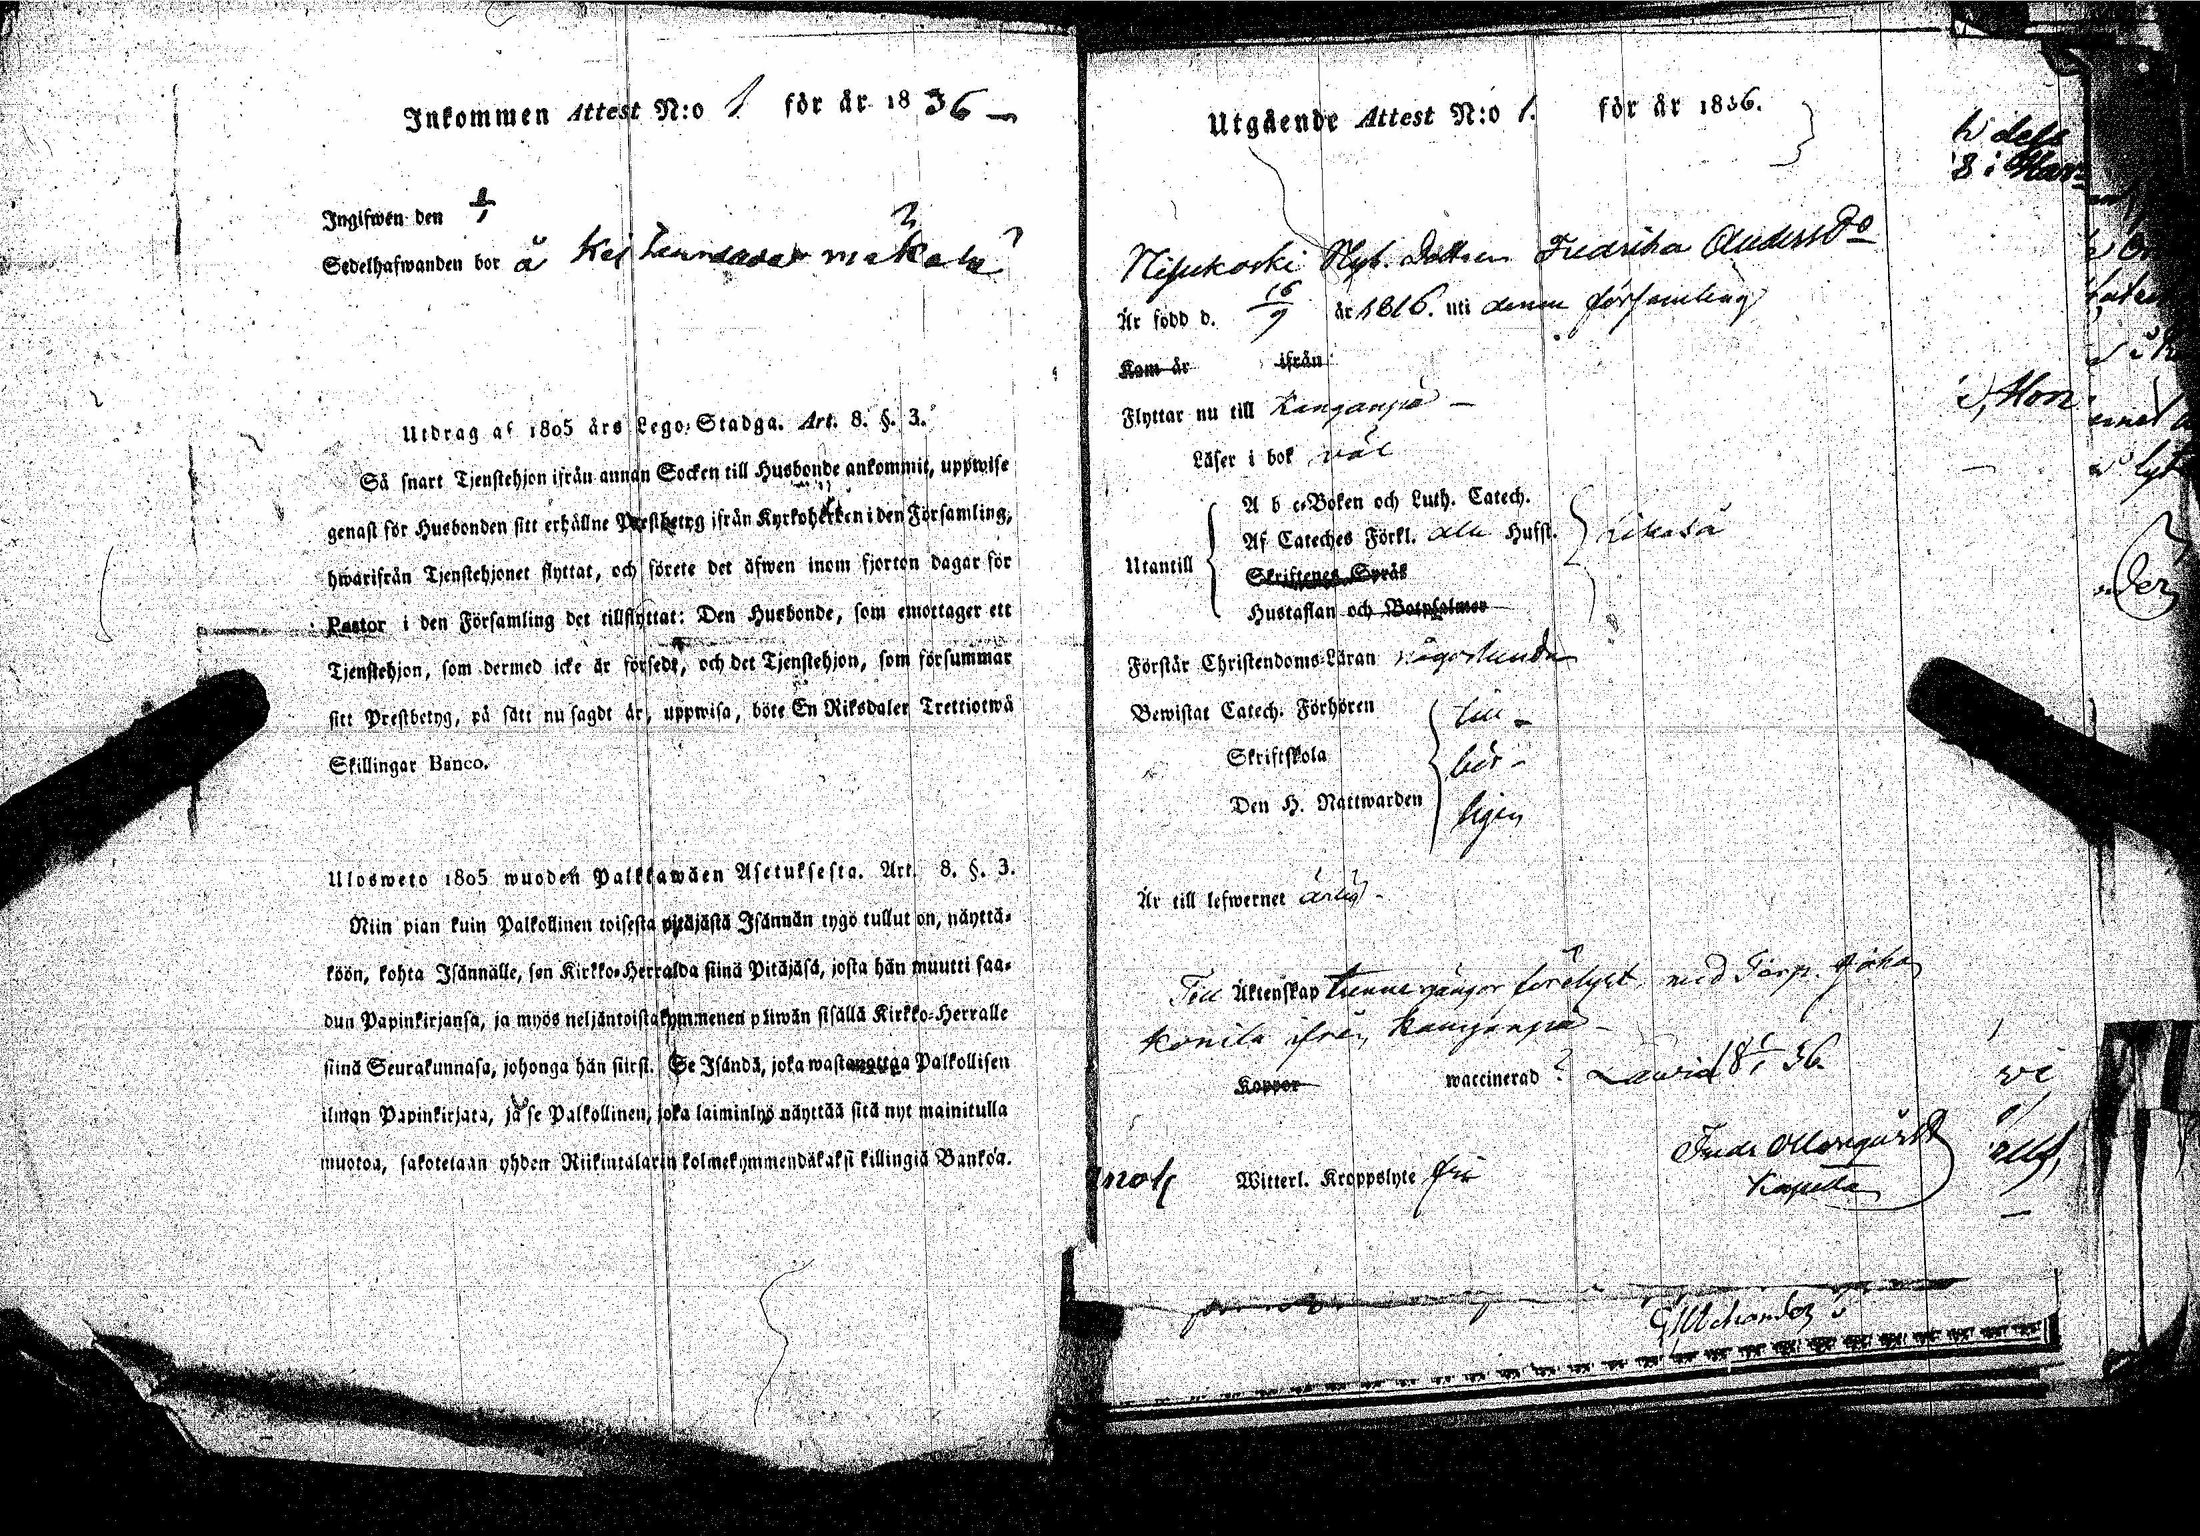 Inkommen Attest N:o 1 för år 1836
Ingifwen den
Sedelhafwanden bor å
Utdrag af 1805 års Lego-Stadga. Art. 8. §. 3.
Så snart Tjenstehjon ifrån annan Socken till Husbonde ankommit, uppwise
genast för Husbonden sitt erhållne Prestbetyg ifrån Kyrkoherden i den Församling,
hwarifrån Tjenstehjonet flyttat, och förete det äfwen inom fjorton dagar för
Pastor i den Församling det tillflyttat: Den Husbonde, som emottager ett
Tjenstehjon, som dermed icke är försedt, och det Tjenstehjon, som försummar
sitt Prestbetyg, på sätt nu sagdt är, uppwisa, böte En Riksdaler Trettiotwå
Skillingar Banco.
Ulosweto 1805 wuoden Palkkawäen Asetuksesta. Art. 8. §. 3.
Niin pian kuin Palkollinen toisesta pitäjästä Isännän tygö tullut on, näyttä-
köön, kohta Isännälle, sen Kirkko-Herralda siinä Pitäjäsä, josta hän muutti saa-
dun Papinkirjansa, ja myös neljäntoistakymmenen päiwän sisällä Kirkko-Herralle
siinä Seurakunnasa, johonga hän siirsi. Se Isändä, joka wastanottaa Palkollisen
ilman Papinkirjata, ja se Palkollinen, joka laiminlyö näyttää sitä nyt mainitulla
muotoa, sakotetaan yhden Riikintalarin kolmekymmendäkaksi killingiä Bankoa.
Utgående Attest N:o 1. för år 1836.
Nyb. Dottren Fredrika Anders Do
Är född d. 16/9 år 1816. uti denna församling
Kom år ifrån
Flyttar nu till Kanganpä
Läser i bok väl
A b c-Boken och Luth. Catech.
Utantill Af Cateches Förkl. alla Hufst. likaså
Skriftenes Språk
Hustaflan och Botpsalmer
Förstår Christendoms-Läran någorlunda
Bewistat Catech. Förhören till-
Skriftskola bör-
Den H. Nattwarden ligen
Är till lefwernet ärlig
Till Äktenskap trenne gånger förelyst, med Torp. Joha
ifrån Kanganpä
Koppor waccinerad ? Lawia d. 8/1 36.
Witterl. Kroppslyte fri